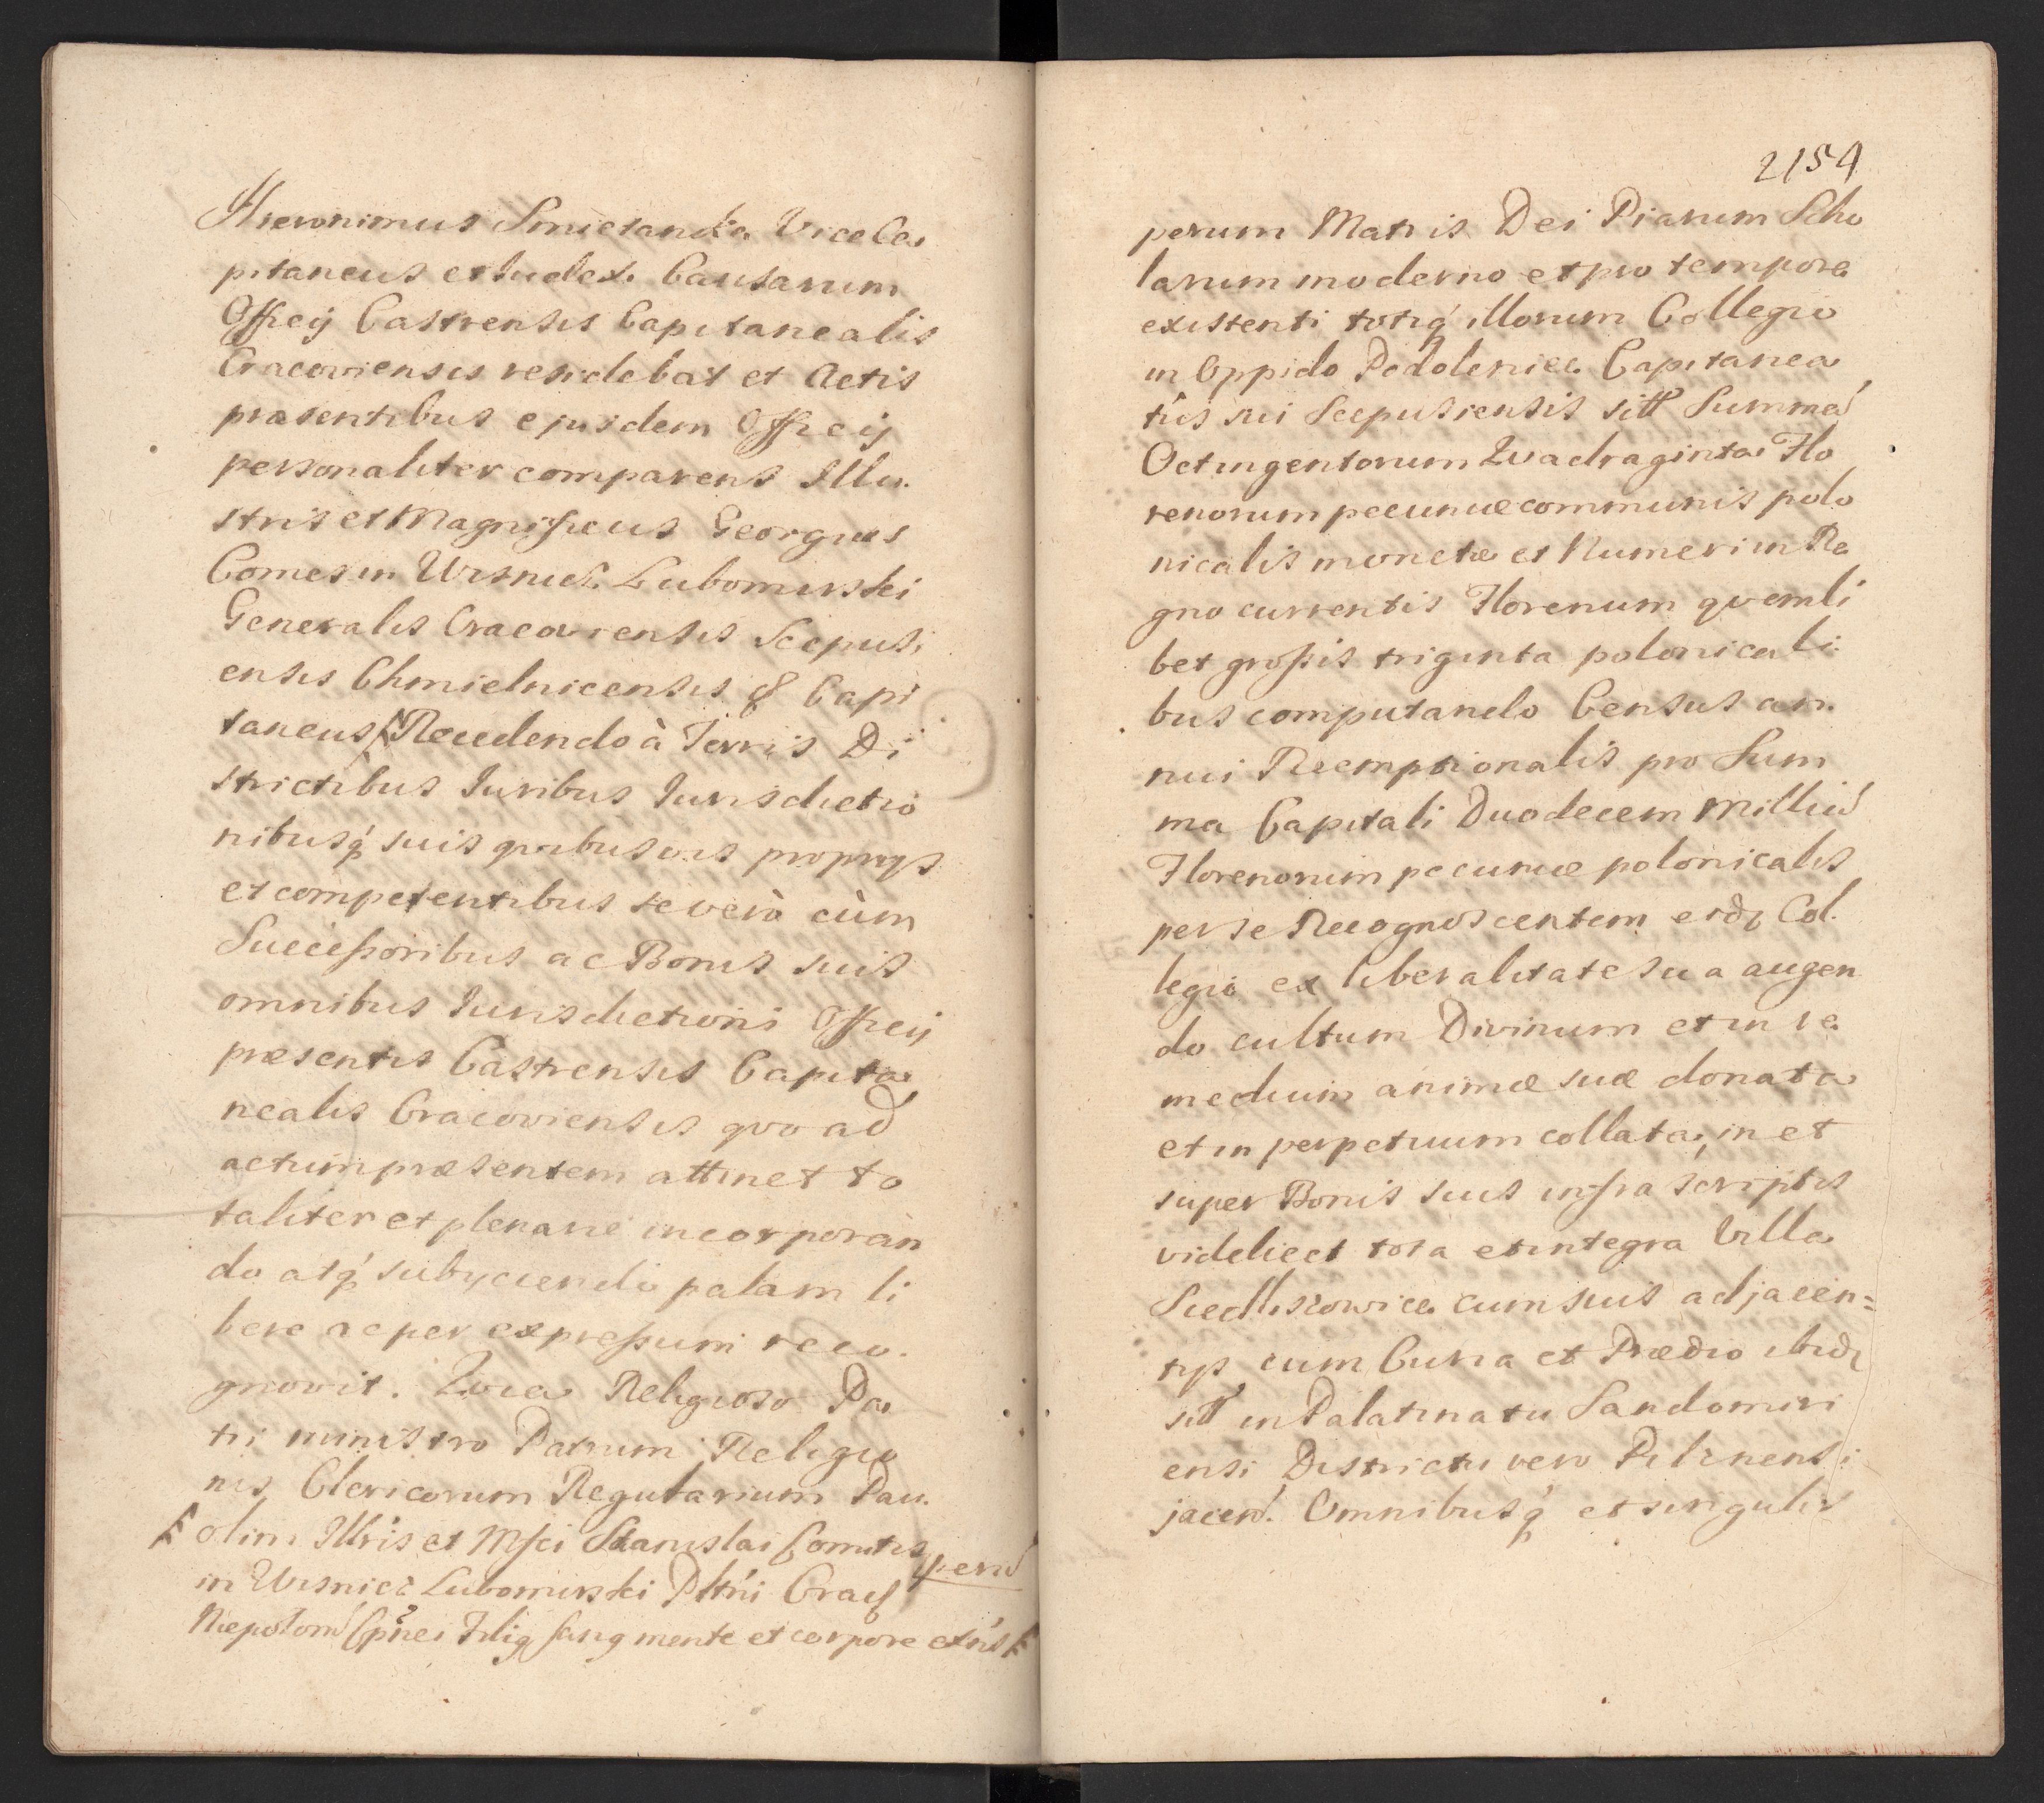 Hieronimus Smietanka Vice Ca
pitaneus et Iudex Causarum
Officij Castrensis Capitanealis
Cracoviensis residebat et Actis
præsentibus ejusdem Officij
personaliter comparens Illu.
stris et Magnificus Georgius
Comes in Wisnicz Lubomirski
Generalis Cracoviensis Scepusi
ensis Chmielnicensis & Capi
taneus Recedendo à Terris Di
strictibus Iuribus Iurisdictio
nibusq́ suis quibusvis proprys
et competentibus se verò cùm
Successoribus ac Bonis suis
omnibus Iurisdictioni Officij
præsentis Castrensis Capita
nealis Cracoviensis qvo ad
actum præsentem attinet to
taliter et plenarie incorporàn
do atq́ subyciendo palam li
bere ac per expressum reco.
gnovit. Qvia Religioso Pa
tri ministro Patrum Religio
nis Clericorum Regularium Pau.
olim Illris et Mfci Stanislai Comitis
perū
in Wisnicz Lubomirski Pltni Crac
Niepolom Cpnei Filig sang mente et corpore exńs
2154
perum Matris Dei Piarum Scho
larum moderno et pro tempore
existenti totiq́ illorum Collegio
in Oppido Podoleniec Capitanea
tûs sui Scepusiensis sitt Summā
Octingentorum Qvadraginta Flo
renorum pecuniæ communis polo
nicalis monetæ et Numeri in Re
gno currentis Florenum qvemli
bet grossis triginta polonicali
bus computando Census an.
nui Reemptionalis pro Sum
ma Capitali Duodecem Milliū
Florenorum pecuniæ polonicalis
per se Recognoscentem eidz Col.
legio ex liberalitate sua augen
do cultum Divinum et in re
medium animæ suæ donata
et in perpetuum collata, in et
super Bonis suis infra scriptis
videlicet tota et integra Villa
Siedliszowice cum suis adjacen=
tijs cum Curia et Prædio ibidz
sitt in Palatinatu Sandomiri
ensi Districtu vero Pilznensi
jacen. Omnibusq́ et singulis